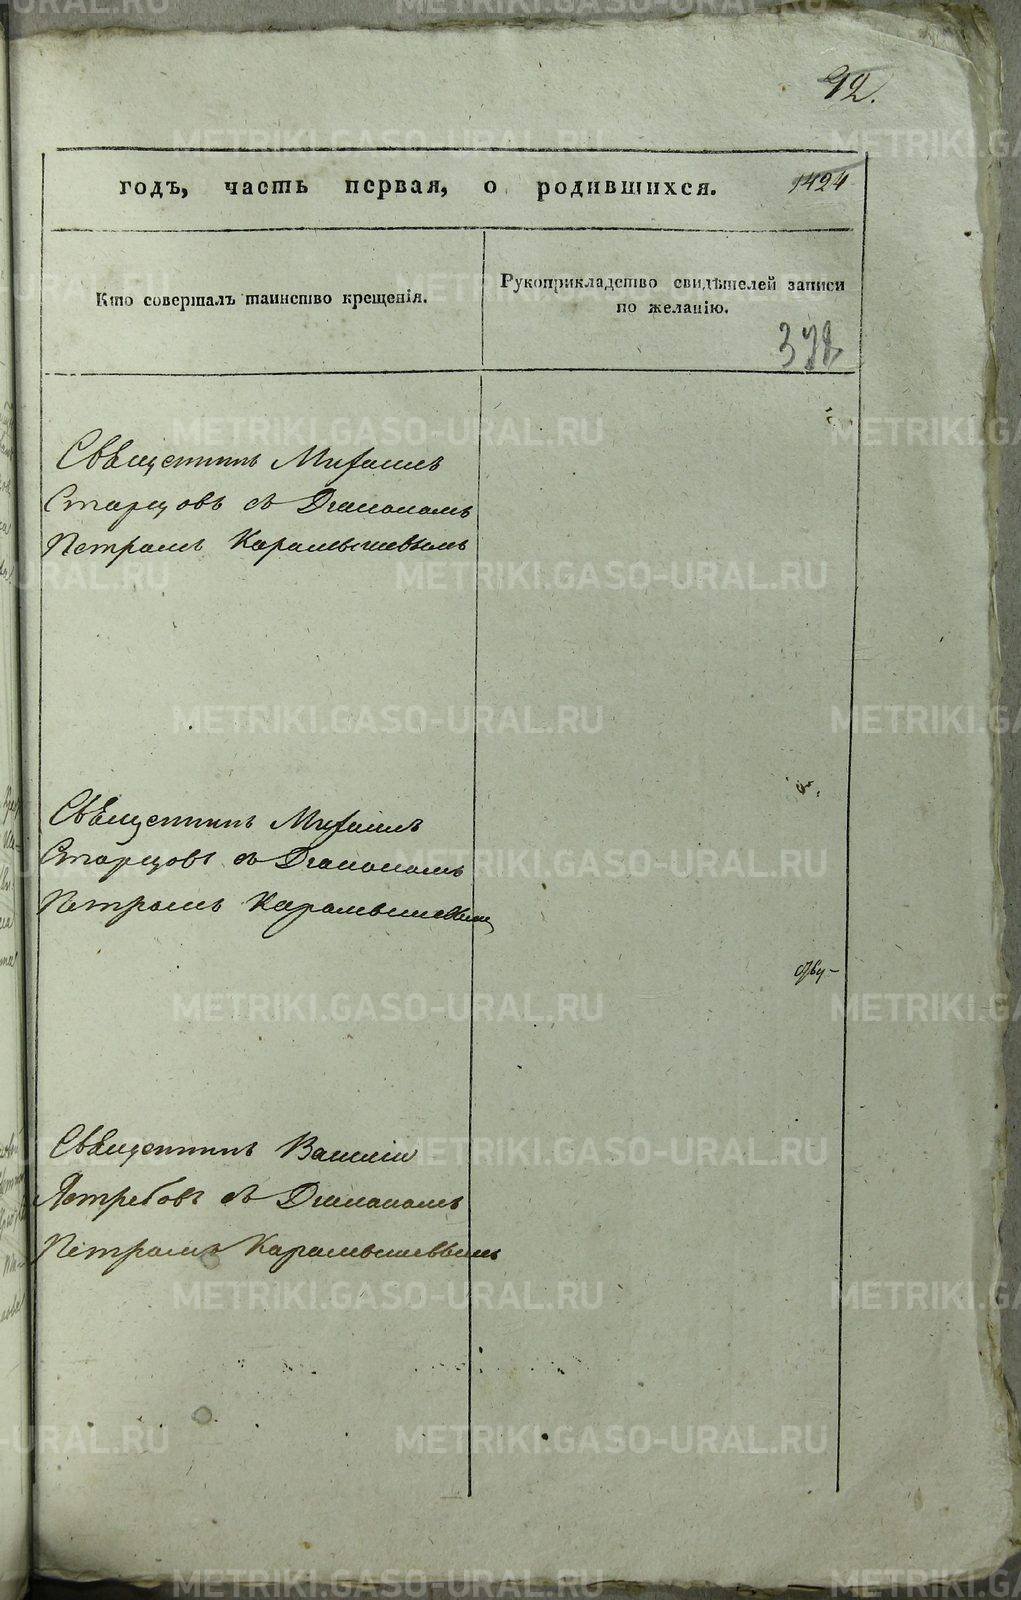 92.
годъ, часть первая, о родившихся.
1424
Кто совершалъ таинство крещенія.
Рукоприкладство свидѣтелей записи
по желанію.
Священникъ Михаилъ
Старцовъ съ Діакономъ
Петромъ Карамышевымъ
Священникъ Михаилъ
Старцовъ съ Діакономъ
Петромъ Карамышевымъ
Священникъ Василій
Ястребовъ съ Діакономъ
Петромъ Карамышевымъ
METRIKI.GASO-URAL.RU